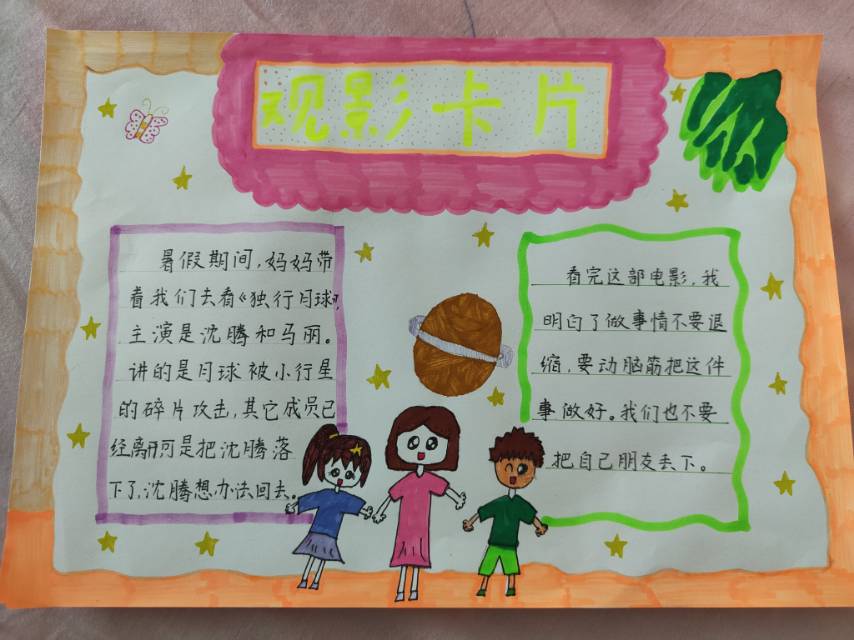 观影卡片
暑假期间,妈妈带
着我们去看《独行月球》,
主演是沈腾和马丽。
讲的是月球被小行星
的碎片攻击,其它成员已
经离开可是把沈腾落
下了,沈腾想办法回去。
看完这部电影,我
明白了做事情不要退
缩,要动脑筋把这件
事做好。我们也不要
把自己朋友丢下。